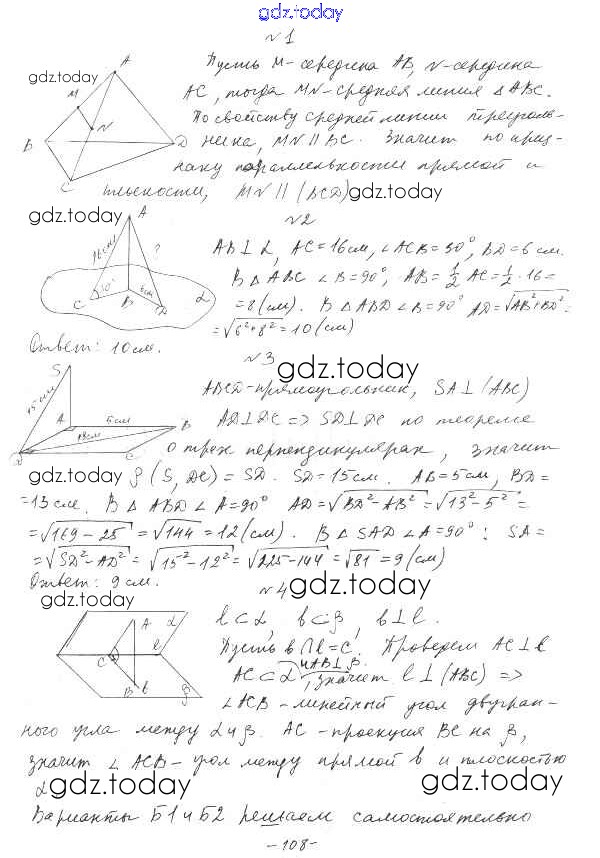 gdz.today
№1
Пусть M-середина AB, N-середина
AC, тогда MN-средняя линия △ABC.
По свойству средней линии треуголь-
ника, MN∥BC. Значит по приз-
наку параллельности прямой и
плоскости, MN∥(BCD)
gdz.today
gdz.today
A
M
N
B
D
C
gdz.today
№2
AB⊥α, AC=16см, ∠ACB=30°, BD=6 см.
В △ABC ∠B=90°, AB=½ AC=½·16=
=8(см). В △ABD ∠B=90° AD=√AB²+BD²=
=√6²+8²=10(см)
A
16см
?
C
30°
B
6см
D
α
Ответ: 10см.
№3
gdz.today
ABCD-прямоугольник, SA⊥(ABC)
AD⊥DC => SD⊥DC по теореме
о трех перпендикулярах, значит
gdz.today
ρ(S, DC) = SD. SD=15см. AB=5см, BD=
=13см. В △ABD ∠A=90° AD=√BD²-AB²=√13²-5²=
=√169-25=√144=12(см). В △SAD ∠A=90°: SA=
=√SD²-AD²=√15²-12²=√225-144=√81=9(см)
S
15см
A
B
D
C
Ответ: 9см.
gdz.today
№4
gdz.today
l⊂α, b⊂β, b⊥l.
Пусть b∩l=C. Проведем AC⊥l
AC⊂α и AB⊥β, значит l⊥(ABC) =>
∠ACB-линейный угол двугран-
ного угла между α и β. AC-проекция BC на β,
значит ∠ACB-угол между прямой b и плоскостью
α
A
α
C
l
B
b
β
gdz.today
gdz.today
Варианты Б1 и Б2 решаем самостоятельно
-108-